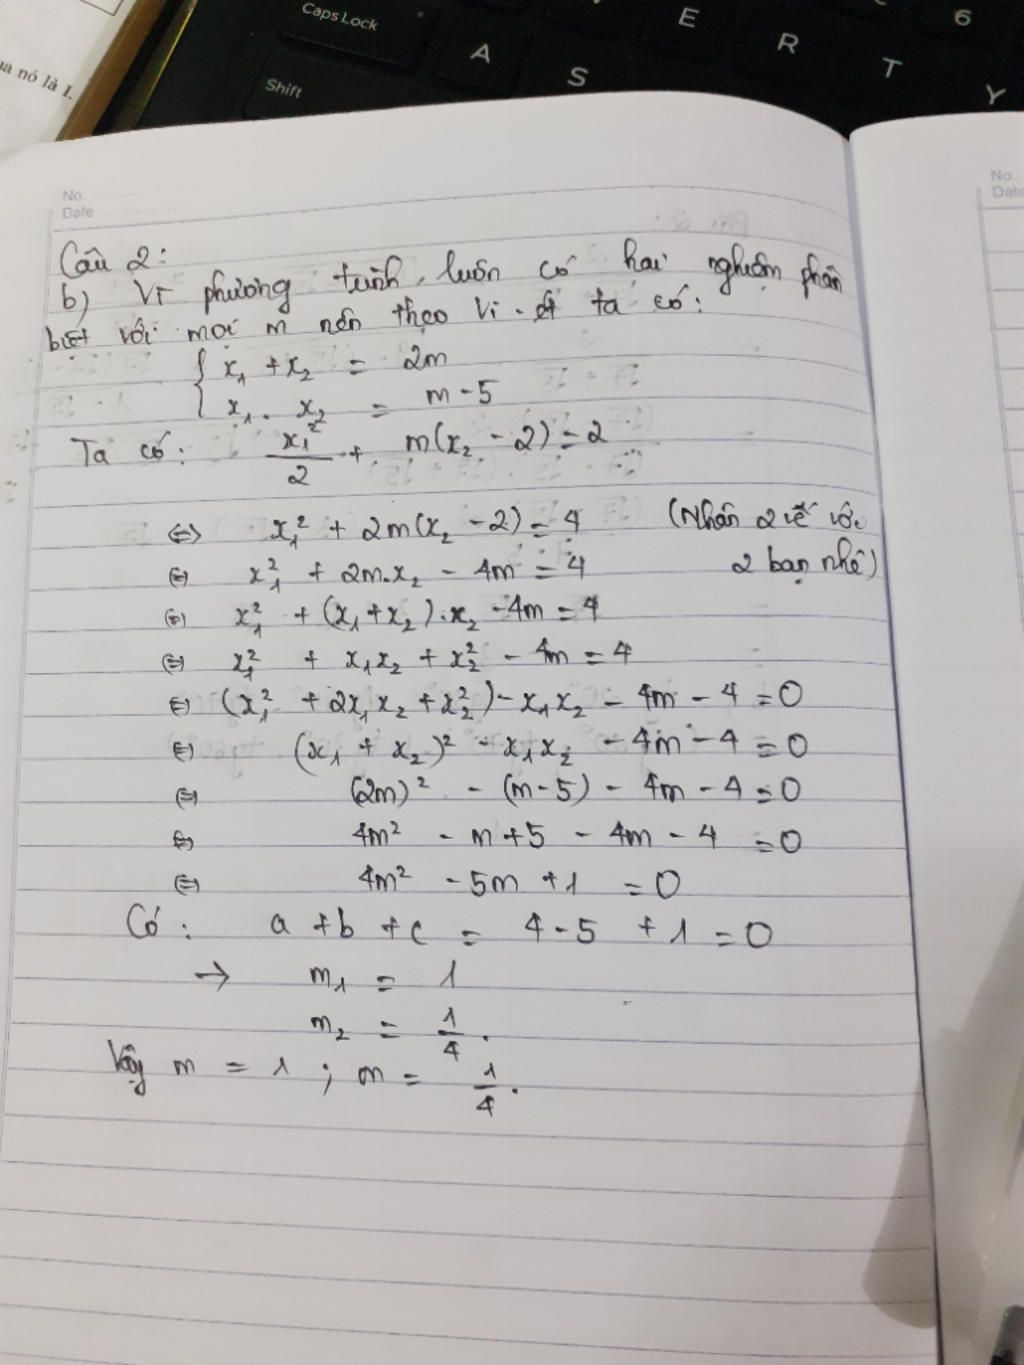 Caps Lock
E
6
A
R
Shift
S
T
Y
ua nó là 1.
No.
Date
No.
Date
Câu 2:
b) Vì phương trình luôn có hai nghiệm phân
biệt với mọi m nên theo Vi-ét ta có:
{ x₁ + x₂ = 2m
x₁ . x₂ = m - 5
Ta có: x₁²/2 + m(x₂ - 2) = 2
⇔ x₁² + 2m(x₂ - 2) = 4 (Nhân 2 vế với
2 bạn nhé)
⇔ x₁² + 2m.x₂ - 4m = 4
⇔ x₁² + (x₁ + x₂).x₂ - 4m = 4
⇔ x₁² + x₁x₂ + x₂² - 4m = 4
⇔ (x₁² + 2x₁x₂ + x₂²) - x₁x₂ - 4m - 4 = 0
⇔ (x₁ + x₂)² - x₁x₂ - 4m - 4 = 0
⇔ (2m)² - (m - 5) - 4m - 4 = 0
⇔ 4m² - m + 5 - 4m - 4 = 0
⇔ 4m² - 5m + 1 = 0
Có: a + b + c = 4 - 5 + 1 = 0
→ m₁ = 1
m₂ = 1/4.
Vậy m = 1 ; m = 1/4.